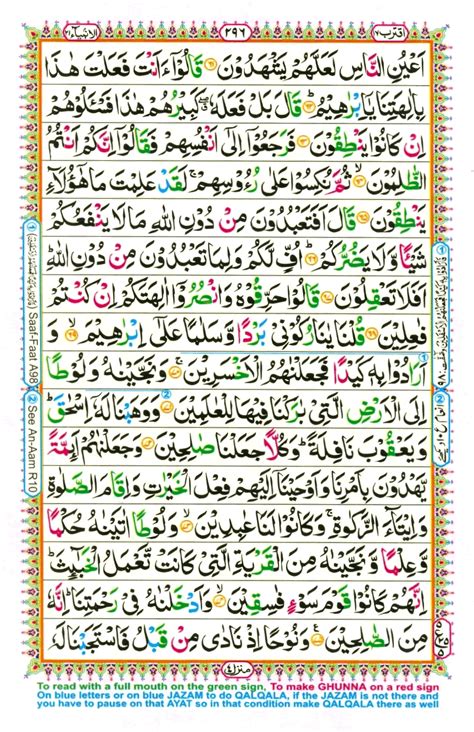 اقترب ٧ ٢٩٦ الانبيآء ٢١
اَعْيُنِ النَّاسِ لَعَلَّهُمْ يَشْهَدُوْنَ ۝ قَالُوْٓا ءَاَنْتَ فَعَلْتَ هٰذَا
بِاٰلِهَتِنَا يٰٓاِبْرٰهِيْمُ ۝ قَالَ بَلْ فَعَلَهٗ ۖ كَبِيْرُهُمْ هٰذَا فَسْـَٔلُوْهُمْ
اِنْ كَانُوْا يَنْطِقُوْنَ ۝ فَرَجَعُوْٓا اِلٰٓى اَنْفُسِهِمْ فَقَالُوْٓا اِنَّكُمْ اَنْتُمُ
الظّٰلِمُوْنَ ۝ ثُمَّ نُكِسُوْا عَلٰى رُءُوْسِهِمْ ۚ لَقَدْ عَلِمْتَ مَا هٰٓؤُلَآءِ
يَنْطِقُوْنَ ۝ قَالَ اَفَتَعْبُدُوْنَ مِنْ دُوْنِ اللّٰهِ مَا لَا يَنْفَعُكُمْ
شَيْـًٔا وَّلَا يَضُرُّكُمْ ۝ اُفٍّ لَّكُمْ وَلِمَا تَعْبُدُوْنَ مِنْ دُوْنِ اللّٰهِ ؕ
اَفَلَا تَعْقِلُوْنَ ۝ قَالُوْا حَرِّقُوْهُ وَانْصُرُوْٓا اٰلِهَتَكُمْ اِنْ كُنْتُمْ
فٰعِلِيْنَ ۝ قُلْنَا يٰنَارُ كُوْنِيْ بَرْدًا وَّسَلٰمًا عَلٰٓى اِبْرٰهِيْمَ ۝ وَ
اَرَادُوْا بِهٖ كَيْدًا فَجَعَلْنٰهُمُ الْاَخْسَرِيْنَ ۝ وَنَجَّيْنٰهُ وَلُوْطًا
اِلَى الْاَرْضِ الَّتِيْ بٰرَكْنَا فِيْهَا لِلْعٰلَمِيْنَ ۝ وَوَهَبْنَا لَهٗٓ اِسْحٰقَ ؕ
وَيَعْقُوْبَ نَافِلَةً ؕ وَكُلًّا جَعَلْنَا صٰلِحِيْنَ ۝ وَجَعَلْنٰهُمْ اَئِمَّةً
يَّهْدُوْنَ بِاَمْرِنَا وَاَوْحَيْنَآ اِلَيْهِمْ فِعْلَ الْخَيْرٰتِ وَاِقَامَ الصَّلٰوةِ
وَاِيْتَآءَ الزَّكٰوةِ ۚ وَكَانُوْا لَنَا عٰبِدِيْنَ ۝ وَلُوْطًا اٰتَيْنٰهُ حُكْمًا
وَّعِلْمًا وَّنَجَّيْنٰهُ مِنَ الْقَرْيَةِ الَّتِيْ كَانَتْ تَّعْمَلُ الْخَبٰٓئِثَ ؕ
اِنَّهُمْ كَانُوْا قَوْمَ سَوْءٍ فٰسِقِيْنَ ۝ وَاَدْخَلْنٰهُ فِيْ رَحْمَتِنَا ؕ اِنَّهٗ
مِنَ الصّٰلِحِيْنَ ۝ وَنُوْحًا اِذْ نَادٰى مِنْ قَبْلُ فَاسْتَجَبْنَا لَهٗ
منزل ٤
① Saaf-Faat A98
② See An-Aam R10
To read with a full mouth on the green sign, To make GHUNNA on a red sign
On blue letters or on blue JAZAM to do QALQALA, if the JAZAM is not there and
you have to pause on that AYAT so in that condition make QALQALA there as well